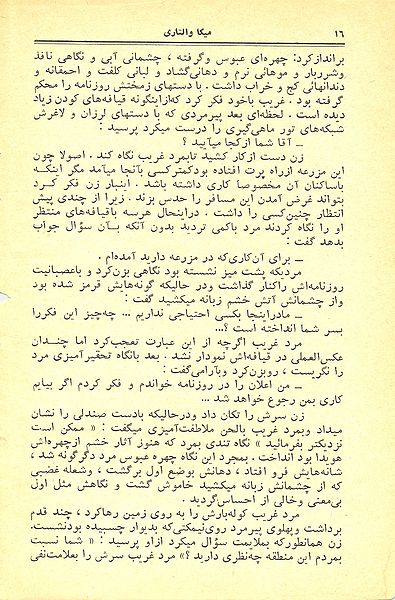 ۱۶ میکا والتاری
براندازکرد: چهره‌ای عبوس وگرفته ، چشمانی آبی و نگاهی نافذ
وشرربار و موهائی نرم و دهانی‌گشاد و لبانی کلفت و احمقانه و
دندانهائی کج و خراب داشت . با دستهای زمختش روزنامه را محکم
گرفته بود . غریب باخود فکر کرد که‌ازاینگونه قیافه‌های کودن زیاد
دیده است . لحظه‌ای بعد پیرمردی که با دستهای لرزان و لاغرش
شبکه‌های تور ماهی‌گیری را درست میکرد پرسید :
ــ آقا شما ازکجا میآیید ؟
زن دست ازکار کشید تابمرد غریب نگاه کند . اصولا چون
این مزرعه ازراه پرت افتاده بودکمترکسی بآنجا میآمد مگر اینکه
باساکنان آن مخصوصا کاری داشته باشد . اینبار زن فکر کرد
بتواند غرض آمدن این مسافر را حدس بزند . زیرا از چندی پیش
انتظار چنین‌کسی را داشت . دراینحال هرسه باقیافه‌های منتظر
او را نگاه کردند مرد باکمی تردید بدون آنکه بآن سؤال جواب
بدهد گفت :
ــ برای آن‌کاری‌که در مزرعه دارید آمده‌ام .
مردیکه پشت میز نشسته بود نگاهی بزن‌کرد و باعصبانیت
روزنامه‌اش راکنار گذاشت ودر حالیکه گونه‌هایش قرمز شده بود
واز چشمانش آتش خشم زبانه میکشید گفت :
ــ مادراینجا بکسی احتیاجی نداریم ... چه‌چیز این فکررا
بسر شما انداخته است ؟...
مرد غریب اگرچه از این عبارت تعجب‌کرد اما چندان
عکس‌العملی در قیافه‌اش نمودار نشد . بعد بانگاه تحقیرآمیزی مرد
را نگریست ، روبزن‌کرد وبآرامی‌گفت :
ــ من اعلان را در روزنامه خواندم و فکر کردم اگر بیایم
کاری بمن رجوع خواهد شد ...
زن سرش را تکان داد ودرحالیکه بادست صندلی را نشان
میداد وبمرد غریب بالحن ملاطفت‌آمیزی میگفت : « ممکن است
نزدیکتر بفرمائید » نگاه تندی بمرد که هنوز آثار خشم ازچهره‌اش
هویدا بود انداخت . بمجرد این نگاه چهره عبوس مرد دگرگونه شد ،
شانه‌هایش فرو افتاد ، دهانش بوضع اول برگشت ، وشعله غضبی
که از چشمانش زبانه میکشید خاموش گشت و نگاهش مثل اول
بی‌معنی وخالی از احساس‌گردید .
مرد غریب کوله‌بارش را به روی زمین رهاکرد ، چند قدم
برداشت وپهلوی پیرمرد روی‌نیمکتی‌که بدیوار چسبیده بودنشست.
زن همانطورکه بملایمت سؤال میکرد ازاو پرسید : « شما نسبت
بمردم این منطقه چه‌نظری دارید ؟» مرد غریب سرش را بعلامت‌نفی